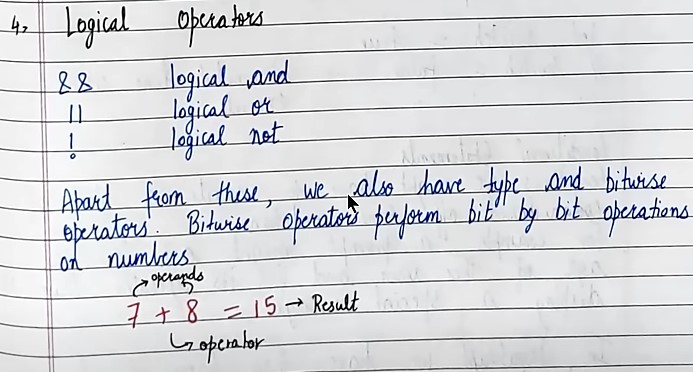 4, Logical Operators
&& logical and
|| logical or
! logical not
Apart from these, we also have type and bitwise
operators. Bitwise operators perform bit by bit operations
on numbers
operands
7 + 8 = 15 → Result
operator